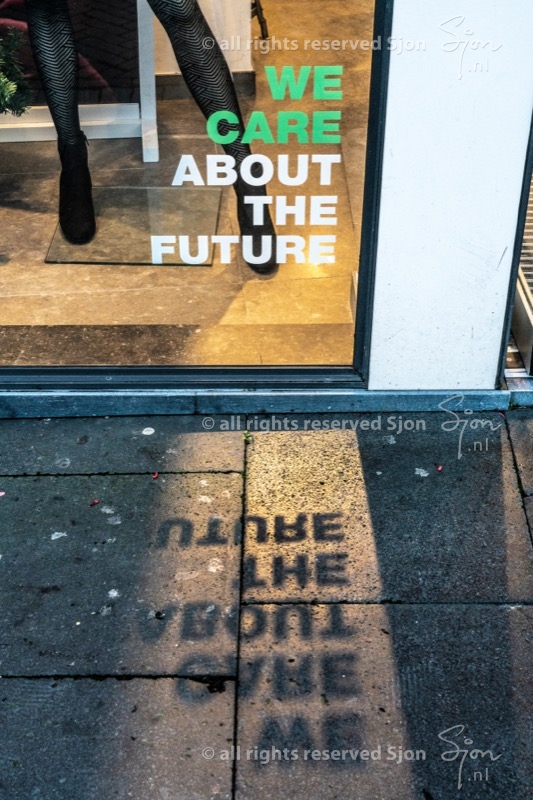 © all rights reserved Sjon
Sjon
.nl
WE
CARE
ABOUT
THE
FUTURE
© all rights reserved Sjon
Sjon
.nl
UTURE
THE
ABOUT
CARE
WE
© all rights reserved Sjon
Sjon
.nl